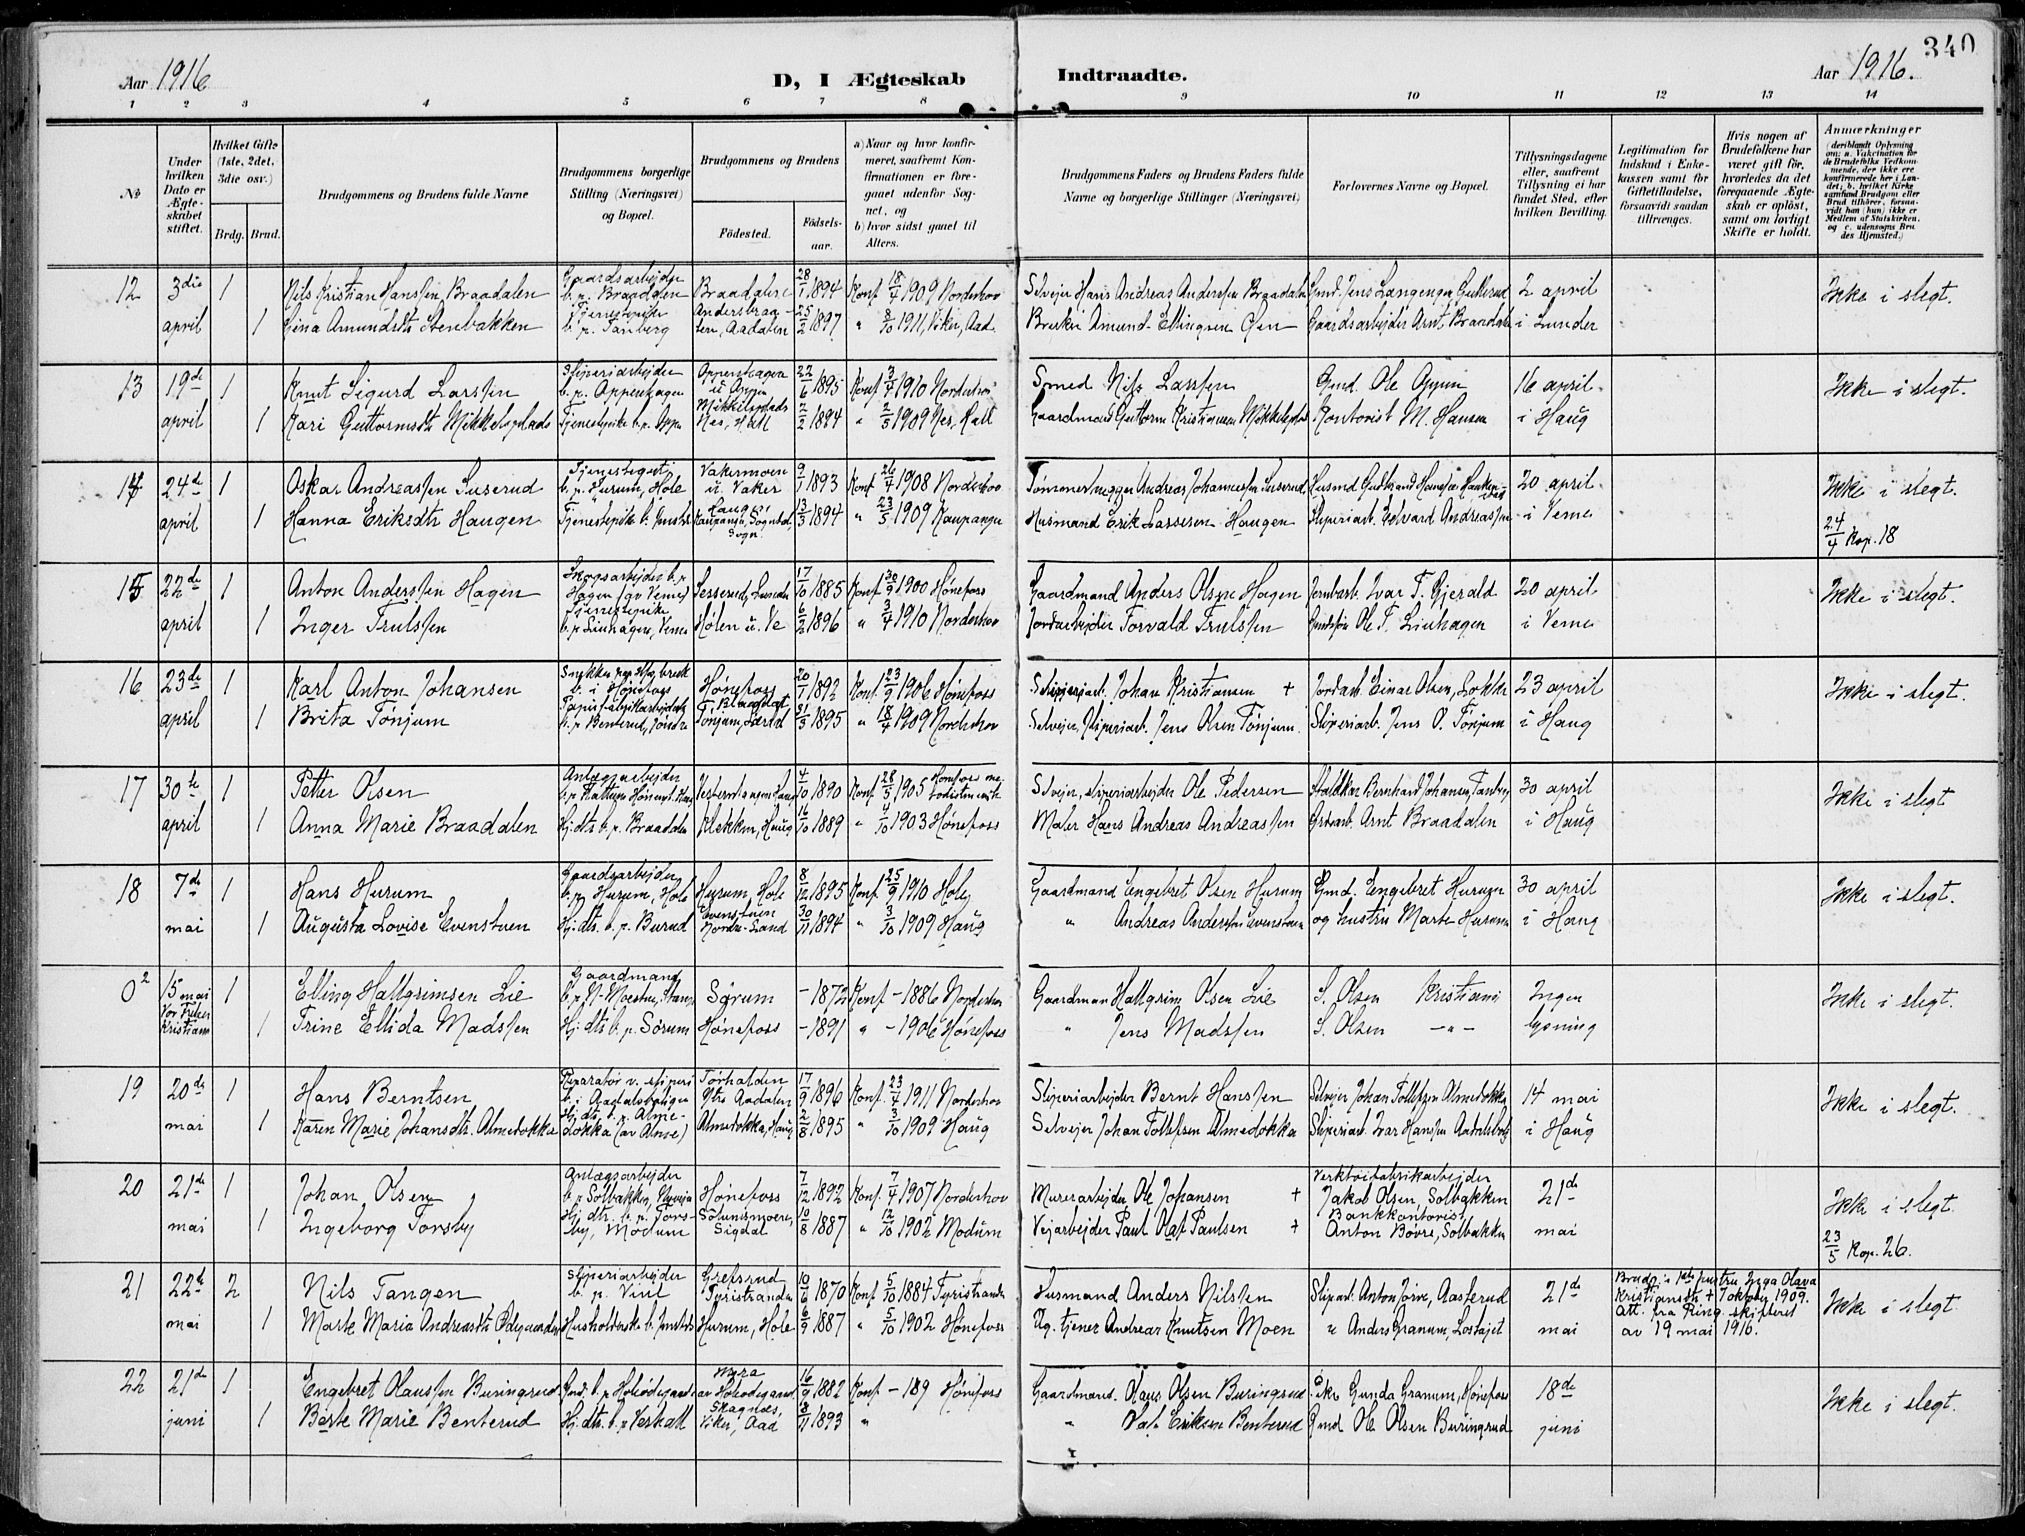 340
Aar 1916
D, I Ægteskab Indtraadte.
Aar 1916.
1 2 3 4 5 6 7 8 9 10 11 12 13 14
No
Under hvilken Dato er Ægteskabet stiftet.
Hvilket Gifte (1ste, 2det, 3die osv.)
Brdg. Brud.
Brudgommens og Brudens fulde Navne
Brudgommens borgerlige Stilling (Næringsvei) og Bopæl.
Brudgommens og Brudens
Fødested.
Fødselsaar.
a) Naar og hvor konfirmeret, saafremt Konfirmationen er foregaaet udenfor Sognet, og
b) hvor sidst gaaet til Alters.
Brudgommens Faders og Brudens Faders fulde Navne og borgerlige Stillinger (Næringsvei)
Forlovernes Navne og Bopæl.
Tillysningsdagene eller, saafremt Tillysning ei har fundet Sted, efter hvilken Bevilling.
Legitimation for Indskud i Enkekassen samt for Giftetilladelse, forsaavidt saadan tiltrænges.
Hvis nogen af Brudefolkene har været gift før, hvorledes da det foregaaende Ægteskab er opløst, samt om lovligt Skifte er holdt.
Anmærkninger (deriblandt Oplysning om: a. Vakcination for de Brudefolks Vedkommende, der ikke ere konfirmerede her i Landet; b. hvilket Kirkesamfund Brudgom eller Brud tilhører, forsaavidt han (hun) ikke er Medlem af Statskirken, og c. udensogns Brudes Hjemsted.)
12 3die 1 Nils Kristian Hanssen Braadalen Gaardsarbejder b. p. Braadalen Braadalen 28/1 1894 Konf 18/4 1909 Norderhov Selvejer Hans Andreas Anderssen Braadalen 2 april Ikke i slegt.
april 1 Amundsdtr Stenbakken Tjenestepike b. p. Tanberg Aadalen 25/2 1897 " 8/10 1911, Viker, Aad. Bruker Amund Ellingsen Gaardsarbejder Arnt Braadalen i Lunder
13 19de 1 Knut Sigurd Larssen Sliperiarbejder b. p. Oppenhagen Oppenhagen u. Oppen 22/6 1895 Konf 3/4 1910 Norderhov Smed Nils Larssen Gmd. Ole Oppen 16 april Ikke i slegt.
april 1 Kari Guttormsdtr Mikkelsplads Tjenestepike b. p. Oppen Mikkelsplads Nes, Hall 2/2 1894 " 2/5 1909 Nes, Hall Gaardmand Guttorm Kristiansen Mikkelsplads Kontorist M. Hansen i Haug
14 24de 1 Oskar Andreassen Suserud b. p. Hurum, Hole Vakermoen u. Vaker 9/1 1893 Konf 26/4 1908 Norderhov Tømmerhugger Andreas Johannessen Suserud 20 april Ikke i slegt.
april 1 Hanna Eriksdtr Haugen Tjenestepike b. Haugen, Kaupanger, Sogndal, Sogn. 13/3 1894 " 23/5 1909 Kaupanger Husmand Erik Lassesen Haugen Sliperiarb. Edvard Andreassen i Veme 24/4 Kop. 18
15 22de 1 Anton Anderssen Hagen Skogsarbejder b. p. Hagen (av Veme) 17/10 1885 Konf 30/9 1900 Hønefoss Gaardmand Anders Olsen Hagen Jernbarb. Ivar T. Gjerald 20 april Ikke i slegt.
april 1 Inger Trulssen Tjenestepike b. p. Linhagen, Veme Hølen u. Ve 6/2 1896 " 3/4 1910 Norderhov Jordarbejder Torvald Trulssen Ole T. Linhagen i Veme
16 23de 1 Karl Anton Johansen b. i Hønefoss Hønefoss 20/1 1892 Konf. 23/9 1906 Hønefoss Sliperiarb. Johan Kristiansen + Jordarb. Einar Olsen, Løkken 23 april Ikke i slegt.
april 1 Brita Tønjum Papirfabrikarbejderske b. p. Benterud Tønjum, Lærdal 31/3 1895 " 18/4 1909 Norderhov Selvejer, sliperiarb. Jens Olsen Tønjum. Sliperiarb. Jens O. Tønjum i Haug
17 30te 1 Petter Olsen Anlægsarbejder 4/10 1890 Konf 28/5 1905 Selvejer, sliperiarbejder Ole Pedersen Bernhard Johansen, Tanberg 30 april Ikke i slegt
april 1 Anna Marie Braadalen Hj. dtr. b. p. Braadalen Klekken, Haug 16/10 1889 " 4/10 1903 Hønefoss Maler Hans Andreas Andreassen Grdsarb. Arnt Braadalen i Haug
18 7de 1 Hans Hurum Gaardsarbejder b. p. Hurum, Hole Hurum, Hole 8/12 1895 Konf 25/9 1910 Hole Gaardmand Engebret Olsen Hurum Gmd. Engebret Hurum 30 april Ikke i slegt.
mai 1 Augusta Lovise Evenstuen Hj. dtr. b. p. Burud Evenstuen Nordre-Land 30/11 1894 " 3/10 1909 Haug " Andreas Anderssen Evenstuen og hustru Marte Hurum i Haug
0² 15 mai Vor Frelser Kristiania 1 Elling Hallgrimsen Lie Gaardmand Sørum - 1872 Konf - 1886 Norderhov Gaardman Hallgrim Olsen Lie S. Olsen Kristiania Ingen Ikke i slegt.
1 Trine Elida Madssen Hj. dtr. b. p. Sørum Hønefoss - 1891 " - 1906 Hønefoss " Jens Madssen S. Olsen - " - lysning
19 20de 1 Hans Berntsen Reparatør v. sliperi Tørhalden Ytre Aadalen 17/9 1896 Konf. 23/4 1911 Norderhov Sliperiarbejder Bernt Hanssen Selvejer Johan Tollefsen Almedokka 14 mai Ikke i slegt.
mai 1 Karen Marie Johansdtr. Almedokka Hj. dtr. b. p. Almedokka (av Alme) Almedokka, Haug 2/8 1895 " 3/10 1909 Haug Selvejer Johan Tollefsen Almedokka Sliperiarb. Ivar Hanssen i Haug
20 21de 1 Johan Olsen Anlægsarbejder b. p. Solbakken Hønefoss 7/12 1892 Konf. 7/4 1907 Norderhov Murerarbejder Ole Johansen + Verktøifabrikarbejder Jakob Olsen, Solbakken 21de Ikke i slegt.
mai 1 Ingeborg Torsby Hj. dtr. b. p. Torsby, Modum Sigdal 10/8 1887 " 12/10 1902 Modum Vejarbejder Paul Olaf Paulsen + Bankkontorist Anton Bøvre, Solbakken mai 23/5 Kop. 26.
21 22de 2 Nils Tangen Sliperiarbejder b. p. Viul Grefsrud Tyristranden 10/6 1870 Konf 5/10 1884 Tyristranden Husmand Anders Nilssen Sliparb. Anton Aasterud 21de Brudg.s 1ste hustru Inga Olava Kristiansdtr + 7 oktober 1909. Att. fra Ring. skifteret av 19 mai 1916. Ikke i slegt
mai 1 Marte Maria Andreasdtr Ødegaarden Husholderske b. Hurum, Hole 6/9 1887 " 5/10 1902 Hønefoss tjener Andreas Knutsen Moen " Anders Granum, mai
22 21de 1 Engebret Olaussen Buringsrud Gmd. b. p. 16/9 1882 Konf - 189 Hønefoss Gaardmand. Olaus Olsen Buringsrud Gunda Granum, Hønefoss 18de Ikke i slegt.
juni 1 Berte Marie Benterud Hj. dtr. b. p. Veskall Skagnæs, Viker, Aad 8/11 1893 " " Olaf Eriksen Benterud Gmd Ole Olsen Buringsrud juni